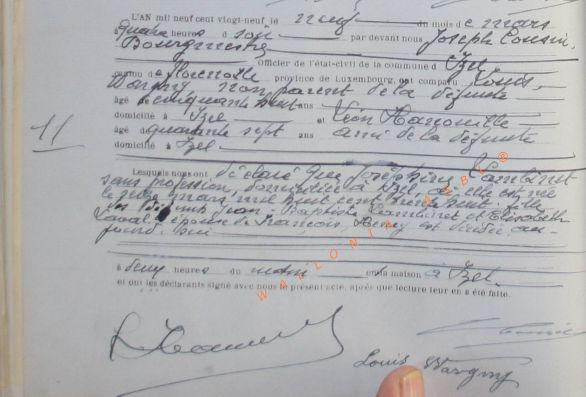 L'AN mil neuf cent vingt-neuf le neuf du mois de mars
à quatre heures d soir par devant nous Joseph Cousin,
Bourgmestre Officier de l'état-civil de la commune d'Izel
canton de Florenville, province de Luxembourg, ont comparu Louis,
Wargny non parent de la défunte
âgé de cinquante huit ans
domicilié à Izel et Léon Hanouille
âgé de quarante sept ans ami de la défunte
domicilié à Izel
11
Lesquels nous ont déclaré que Joséphine Lambinet
sans profession, domiciliée à Izel, où elle est née
le mars mil huit cent huit, fille
des défunts Jean Baptiste Lambinet et Elisabeth
épouse de François, Henry est décédée au-
jourd'hui
à deux heures du matin en sa maison à Izel.
et ont les déclarants signé avec nous le présent acte, après que lecture leur en a été faite.
WALLONIA ®
Louis Wargny